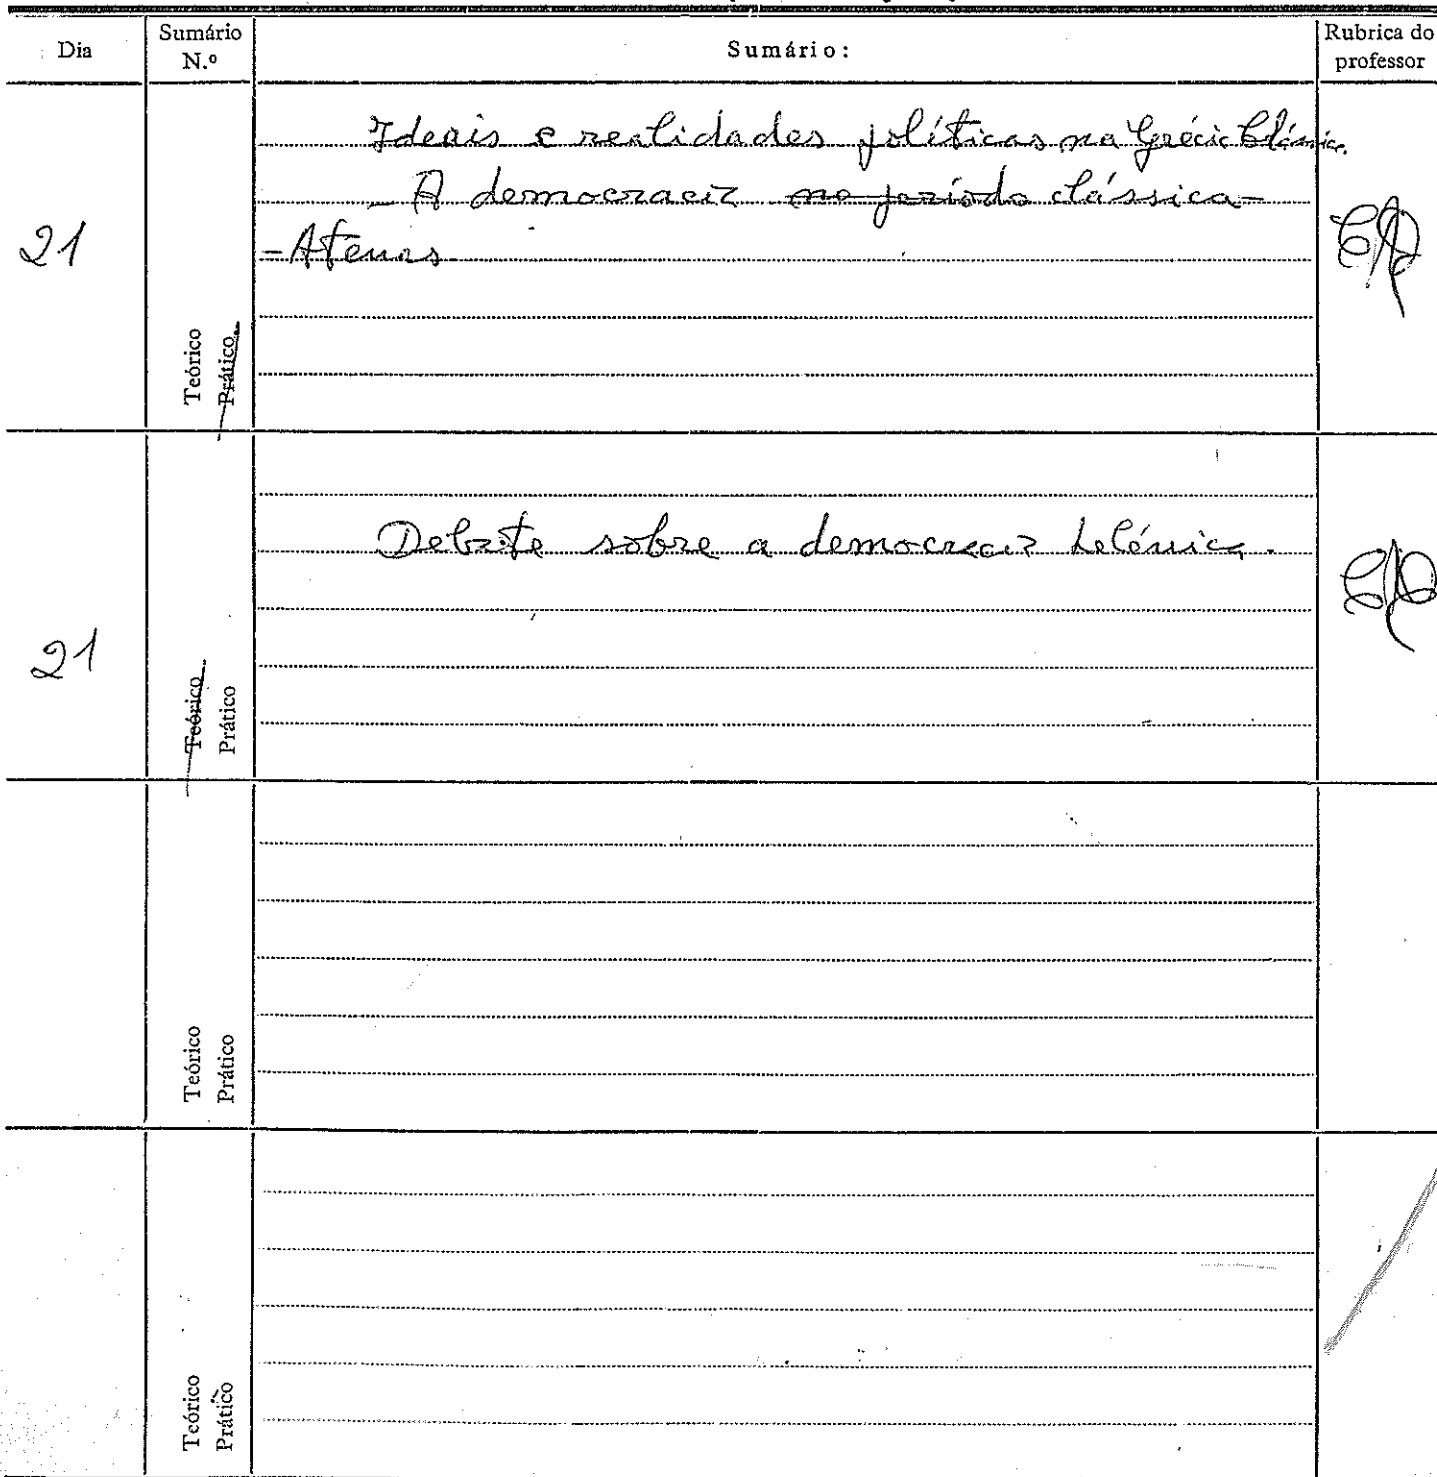 Dia Sumário N.º Sumário: Rubrica do professor
21
Ideais e realidades políticas na Grécia Clássica.
- A democracia no período clássica -
- Atenas
Teórico
Prático
21
Debate sobre a democracia helénica.
Teórico
Prático
Teórico
Prático
Teórico
Prático